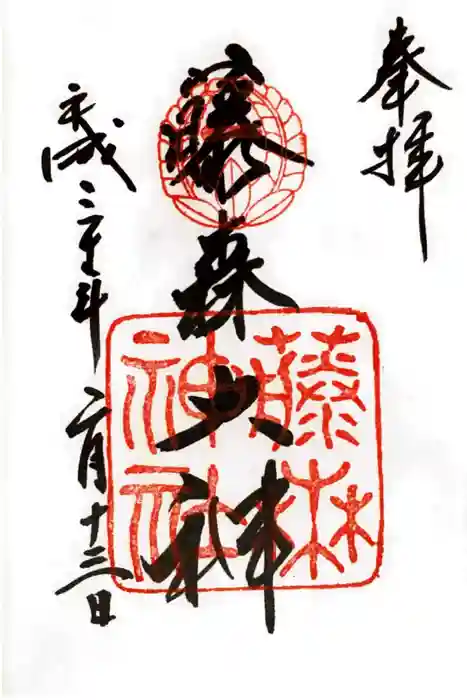 奉拝
藤森大神
藤森
神社
平成年二月十三日